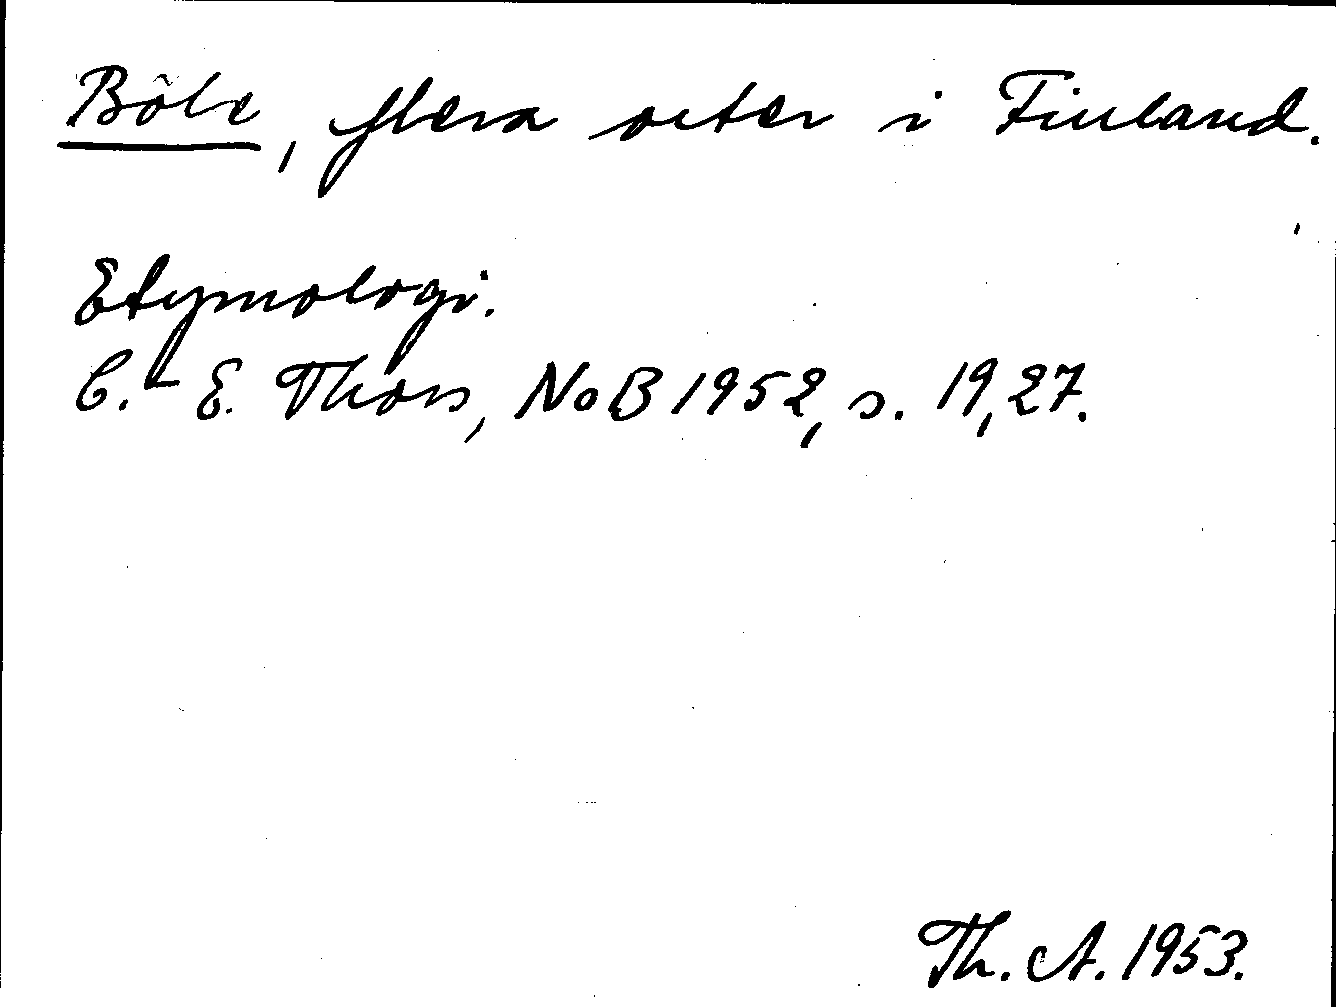 Böle, flera orter i Finland.
Etymologi.
C.-E. Thors, NoB 1952, s. 19, 27.
Th. A. 1953.